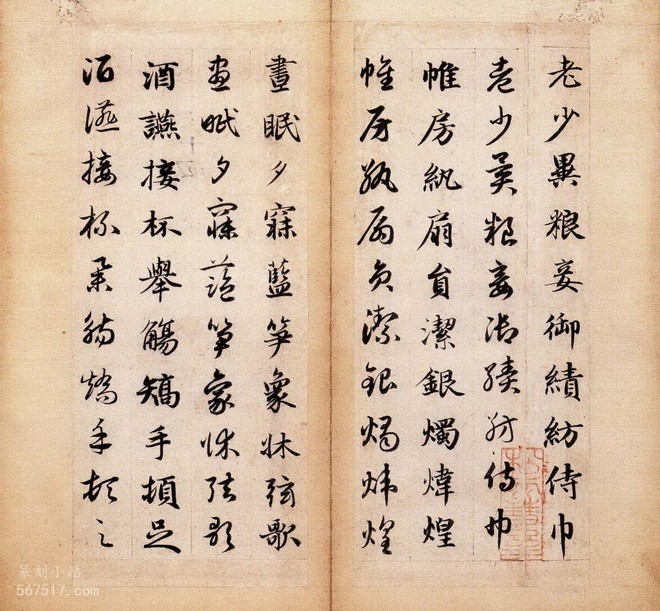 老少異粮妾御績紡侍巾
老少異粮妾御績紡侍巾
帷房紈扇員潔銀燭煒煌
帷房紈扇員潔銀燭煒煌
晝眠夕寐藍笋象牀弦歌
晝眠夕寐藍笋象牀弦歌
酒讌接杯舉觴矯手頓足
酒讌接杯舉觴矯手頓足
篆刻小站
567517.com